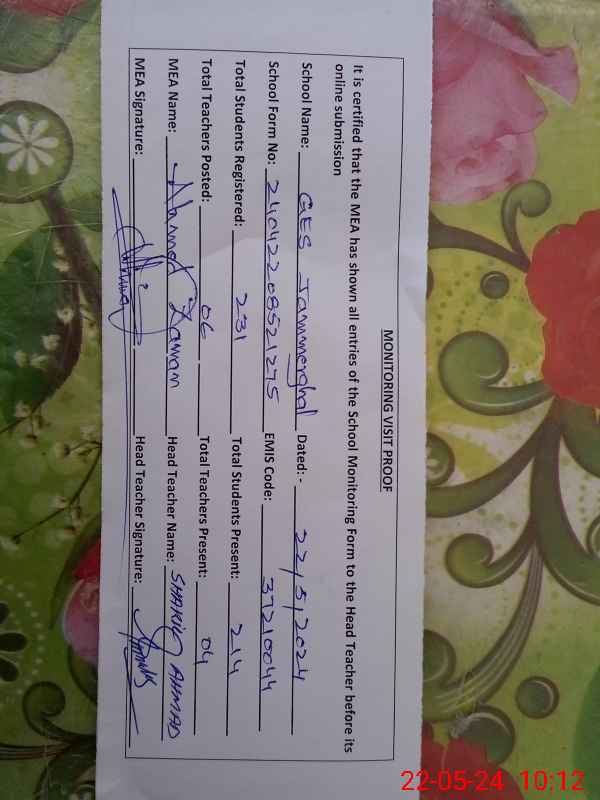 MONITORING VISIT PROOF
It is certified that the MEA has shown all entries of the School Monitoring Form to the Head Teacher before its
online submission
School Name: GES Jammerghal Dated: - 22/5/2024
School Form No: 240422208521275 EMIS Code: 37210044
Total Students Registered: 231 Total Students Present: 214
Total Teachers Posted: 06 Total Teachers Present: 04
MEA Name: Ahmed Zaman Head Teacher Name: SHARIQ AHMAD
MEA Signature: Head Teacher Signature:
22-05-24 10:12